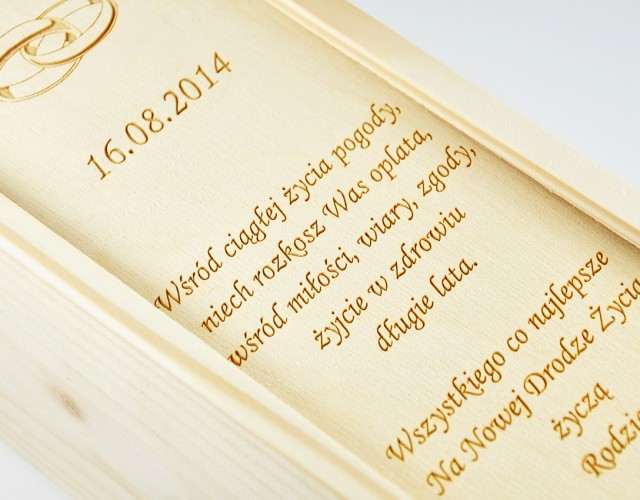 16.08.2014
Wśród ciągłej życia pogody,
niech rozkosz Was oplata,
wśród miłości, wiary, zgody,
żyjcie w zdrowiu
długie lata.
Wszystkiego co najlepsze
Na Nowej Drodze Życia
życzą